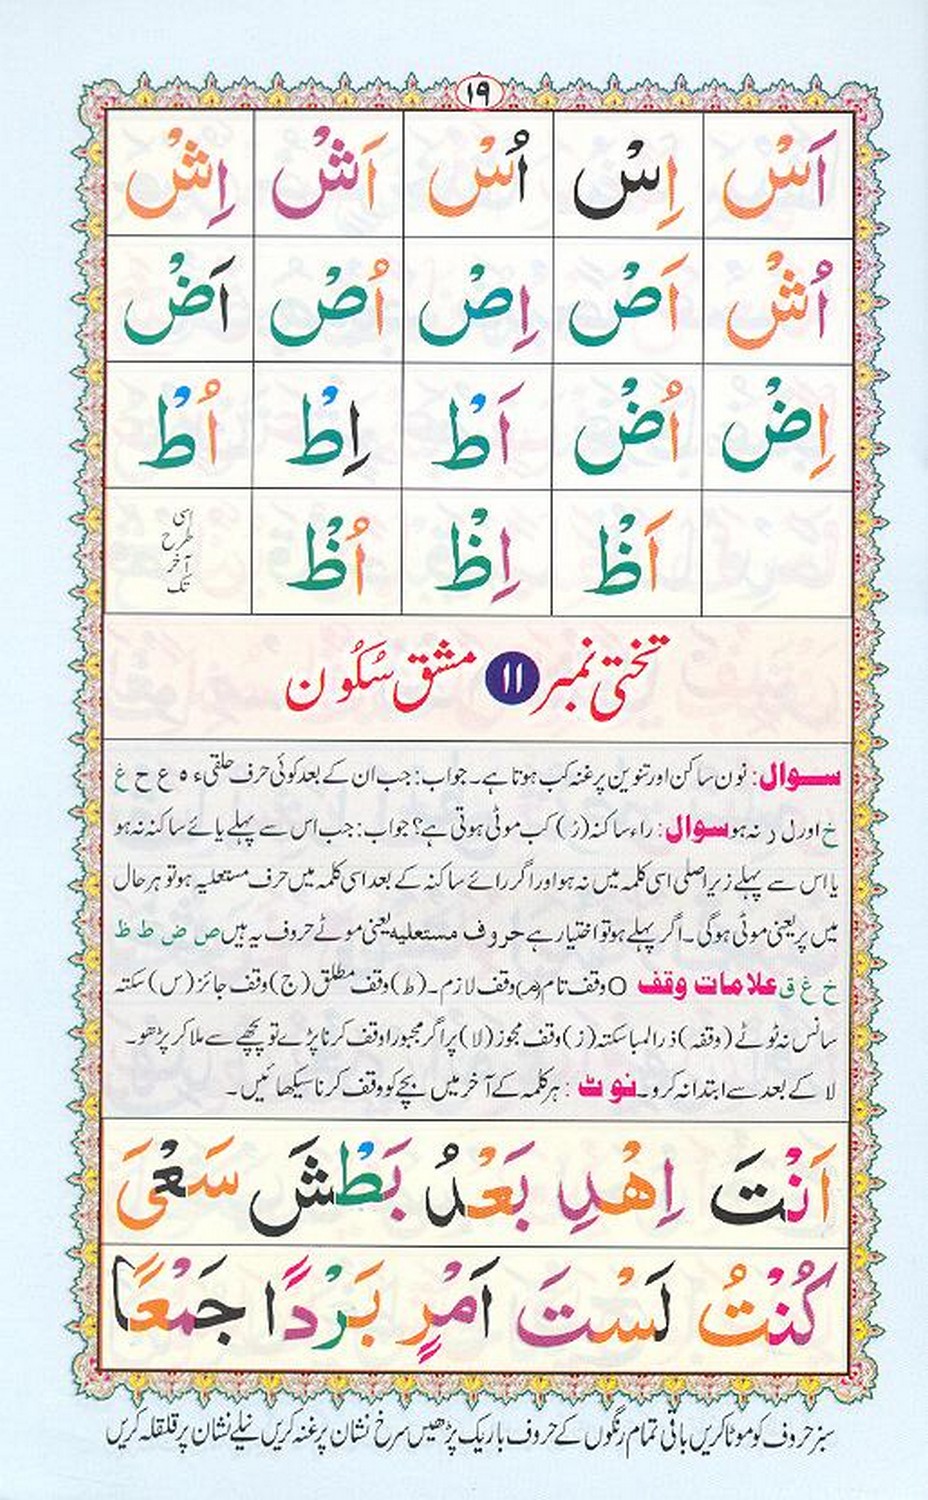 ۱۹
اَسْ اِسْ اُسْ اَشْ اِشْ
اُشْ اَصْ اِصْ اُصْ اَضْ
اِضْ اُضْ اَطْ اِطْ اُطْ
اَظْ اِظْ اُظْ اسی طرح آخر تک
تختی نمبر ۱۱ مشق سُکُون
سوال: نون ساکن اور تنوین پر غنہ کب ہوتا ہے۔ جواب: جب ان کے بعد کوئی حرف حلقی ء ہ ع ح غ
خ اور ل ر نہ ہو سوال: راء ساکنہ (رْ) کب موٹی ہوتی ہے؟ جواب: جب اس سے پہلے یائے ساکنہ نہ ہو
یا اس سے پہلے زیر اصلی اسی کلمہ میں نہ ہو اور اگر رائے ساکنہ کے بعد اسی کلمہ میں حرف مستعلیہ ہو تو ہر حال
میں پر یعنی موٹی ہوگی۔ اگر پہلے ہو تو اختیار ہے حروف مستعلیہ یعنی موٹے حروف یہ ہیں ص ض ط ظ
خ غ ق علامات وقف ○ وقف تام (م) وقف لازم۔ (ط) وقف مطلق (ج) وقف جائز (س) سکتہ
سانس نہ ٹوٹے (وقفہ) ذرا لمبا سکتہ (ز) وقف مجوز (لا) پر اگر مجبورا وقف کرنا پڑے تو پیچھے سے ملا کر پڑھو۔
لا کے بعد سے ابتدا نہ کرو۔ نوٹ: ہر کلمہ کے آخر میں بچے کو وقف کرنا سیکھائیں۔
اَنْتَ اِهْدِ بَعْدُ بَطْشَ سَعْیَ
كُنْتُ لَسْتَ اَمْرٍ بَرْدًا جَمْعًا
سبز حروف کو موٹا کریں باقی تمام رنگوں کے حروف باریک پڑھیں سرخ نشان پر غنہ کریں نیلے نشان پر قلقلہ کریں